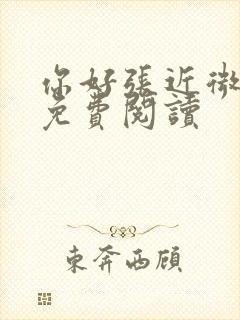 你好張近微
免費閱讀
東奔西顧